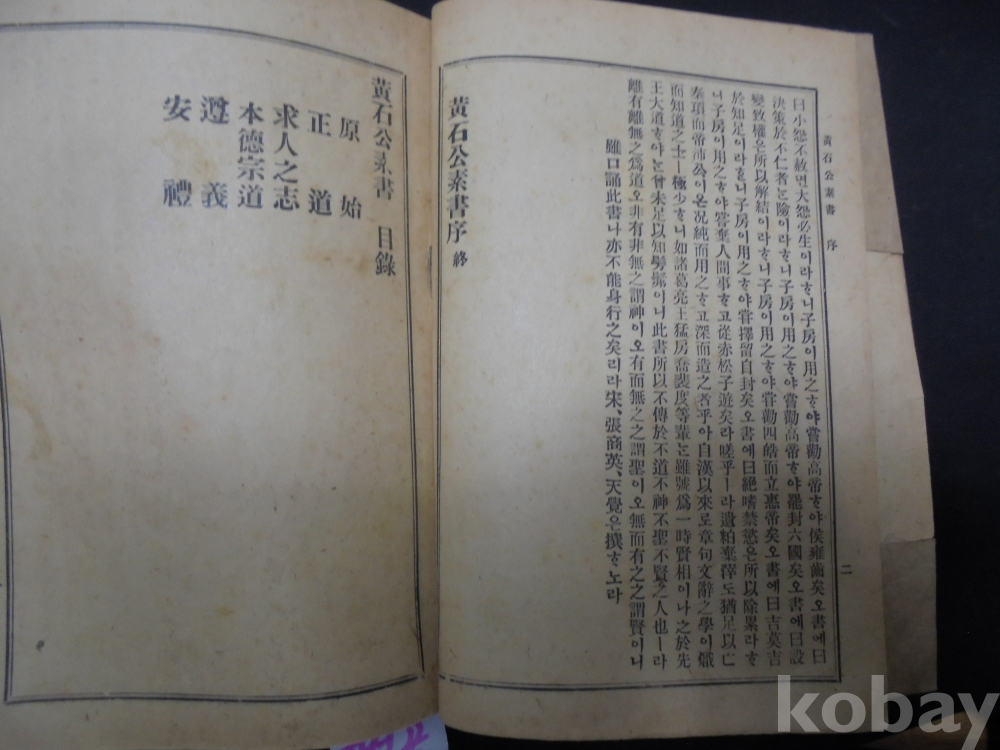 黃石公素書 序
二
曰小怨不赦면大怨必生이라ᄒᆞ니子房이用之ᄒᆞ야嘗勸高帝ᄒᆞ야侯雍齒矣오書에曰
決策於不仁者ᄂᆞᆫ險이라ᄒᆞ니子房이用之ᄒᆞ야嘗勸高帝ᄒᆞ야罷封六國矣오書에曰設
變致權은所以解結이라ᄒᆞ니子房이用之ᄒᆞ야嘗勸四皓而立惠帝矣오書에曰吉莫吉
於知足이라ᄒᆞ니子房이用之ᄒᆞ야嘗擇留自封矣오書에曰絶嗜禁慾은所以除累라ᄒᆞ
니子房이用之ᄒᆞ야嘗棄人間事ᄒᆞ고從赤松子遊矣라嗟乎ㅣ라遺粕棄滓도猶足以亡
秦項而帝沛公이온况純而用之ᄒᆞ고深而造之者乎아自漢以來로章句文辭之學이熾
而知道之士ㅣ極少ᄒᆞ니如諸葛亮王猛房喬裴度等輩ᄂᆞᆫ雖號爲一時賢相이나之於先
王大道ᄒᆞ야ᄂᆞᆫ曾未足以知髣髴이니此書所以不傳於不道不神不聖不賢之人也ㅣ라
離有離無之爲道오非有非無之謂神이오有而無之之謂聖이오無而有之之謂賢이니
雖口誦此書나亦不能身行之矣리라宋、張商英、天覺은撰ᄒᆞ노라
黃石公素書序 終
黃石公素書 目錄
原始
正道
求人之志
本德宗道
遵義
安禮
kobay